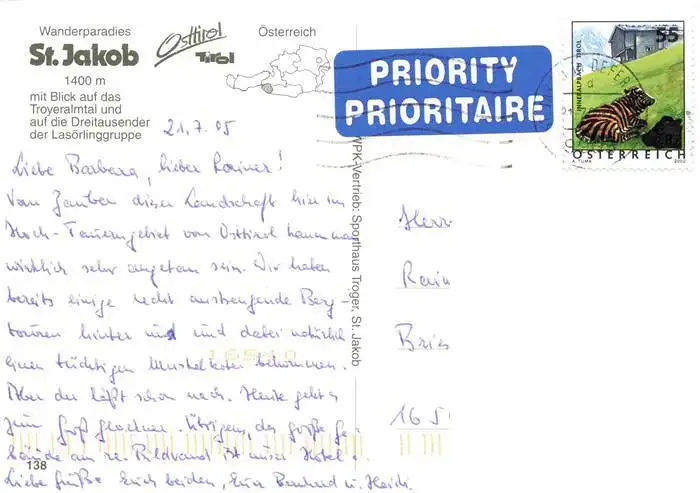 Wanderparadies
St. Jakob
1400 m
mit Blick auf das
Troyeralmtal und
auf die Dreitausender
der Lasörlinggruppe
Osttirol
Tirol
Österreich
PRIORITY
PRIORITAIRE
55
INNERALPBACH TIROL
ÖSTERREICH
A. TUMA 2002
21.7.05
Liebe Barbara, lieber Rainer!
Vom Zauber dieser Landschaft hier im
Hoch-Tauerngebiet von Osttirol kann man
wirklich sehr angetan sein. Wir haben
bereits einige recht anstrengende Berg-
touren hinter uns und dabei natürlich
einen tüchtigen Muskelkater bekommen.
Aber der läßt schon nach. Heute geht es
zum Großglockner. Übrigens, das große Ge-
bäude am re. Bildrand ist unser Hotel.
Liebe Grüße Euch beiden, Eure Bernhard u. Heidi
WPK-Vertrieb: Sporthaus Troger, St. Jakob
Herr
Rain
Bries
165
138